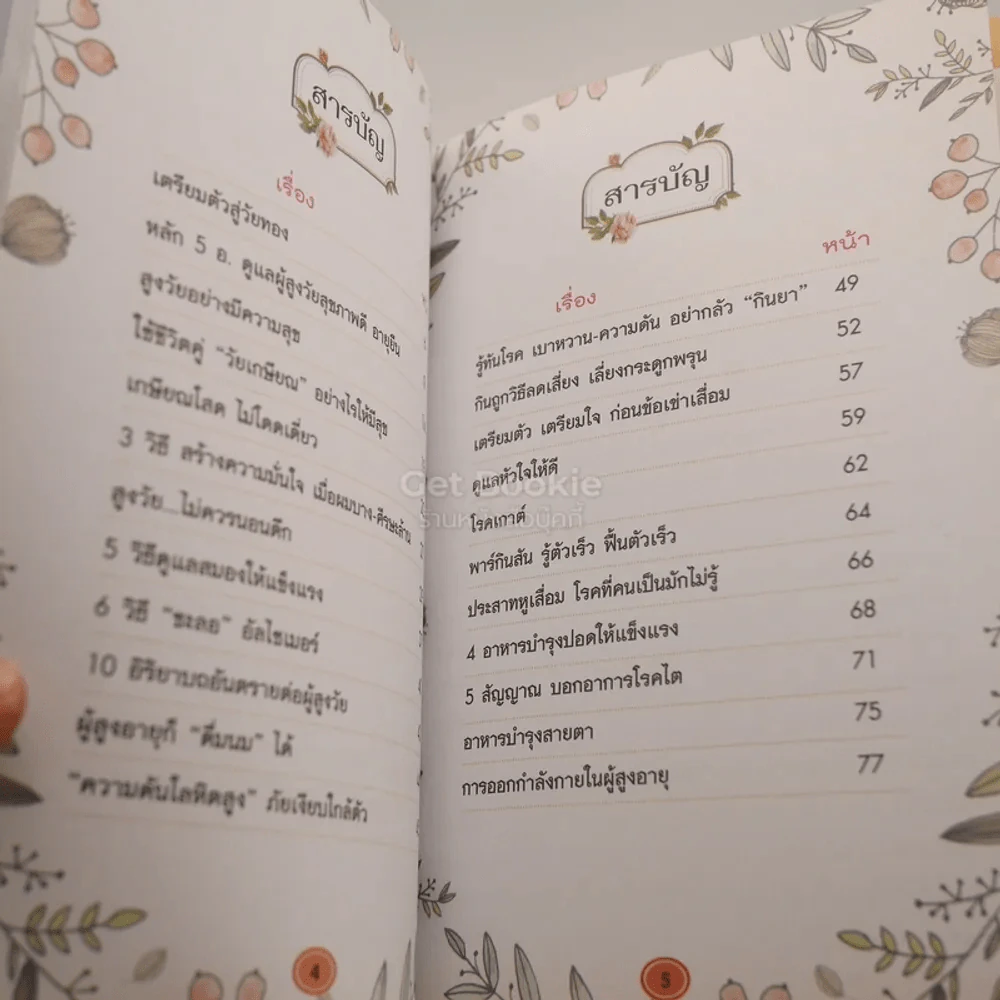 สารบัญ
เรื่อง
เตรียมตัวสู่วัยทอง
หลัก 5 อ. ดูแลผู้สูงวัยสุขภาพดี อายุยืน
สูงวัยอย่างมีความสุข
ใช้ชีวิตคู่ "วัยเกษียณ" อย่างไรให้มีสุข
เกษียณโสด ไม่โดดเดี่ยว
3 วิธี สร้างความมั่นใจ เมื่อผมบาง-ศีรษะล้าน
สูงวัย....ไม่ควรนอนดึก
5 วิธีดูแลสมองให้แข็งแรง
6 วิธี "ชะลอ" อัลไซเมอร์
10 อิริยาบถอันตรายต่อผู้สูงวัย
ผู้สูงอายุก็ "ดื่มนม" ได้
"ความดันโลหิตสูง" ภัยเงียบใกล้ตัว
4
สารบัญ
เรื่อง หน้า
รู้ทันโรค เบาหวาน-ความดัน อย่ากลัว "กินยา" 49
กินถูกวิธีลดเสี่ยง เลี่ยงกระดูกพรุน 52
เตรียมตัว เตรียมใจ ก่อนข้อเข่าเสื่อม 57
ดูแลหัวใจให้ดี 59
โรคเกาต์ 62
พาร์กินสัน รู้ตัวเร็ว ฟื้นตัวเร็ว 64
ประสาทหูเสื่อม โรคที่คนเป็นมักไม่รู้ 66
4 อาหารบำรุงปอดให้แข็งแรง 68
5 สัญญาณ บอกอาการโรคไต 71
อาหารบำรุงสายตา 75
การออกกำลังกายในผู้สูงอายุ 77
5
Get Bookie